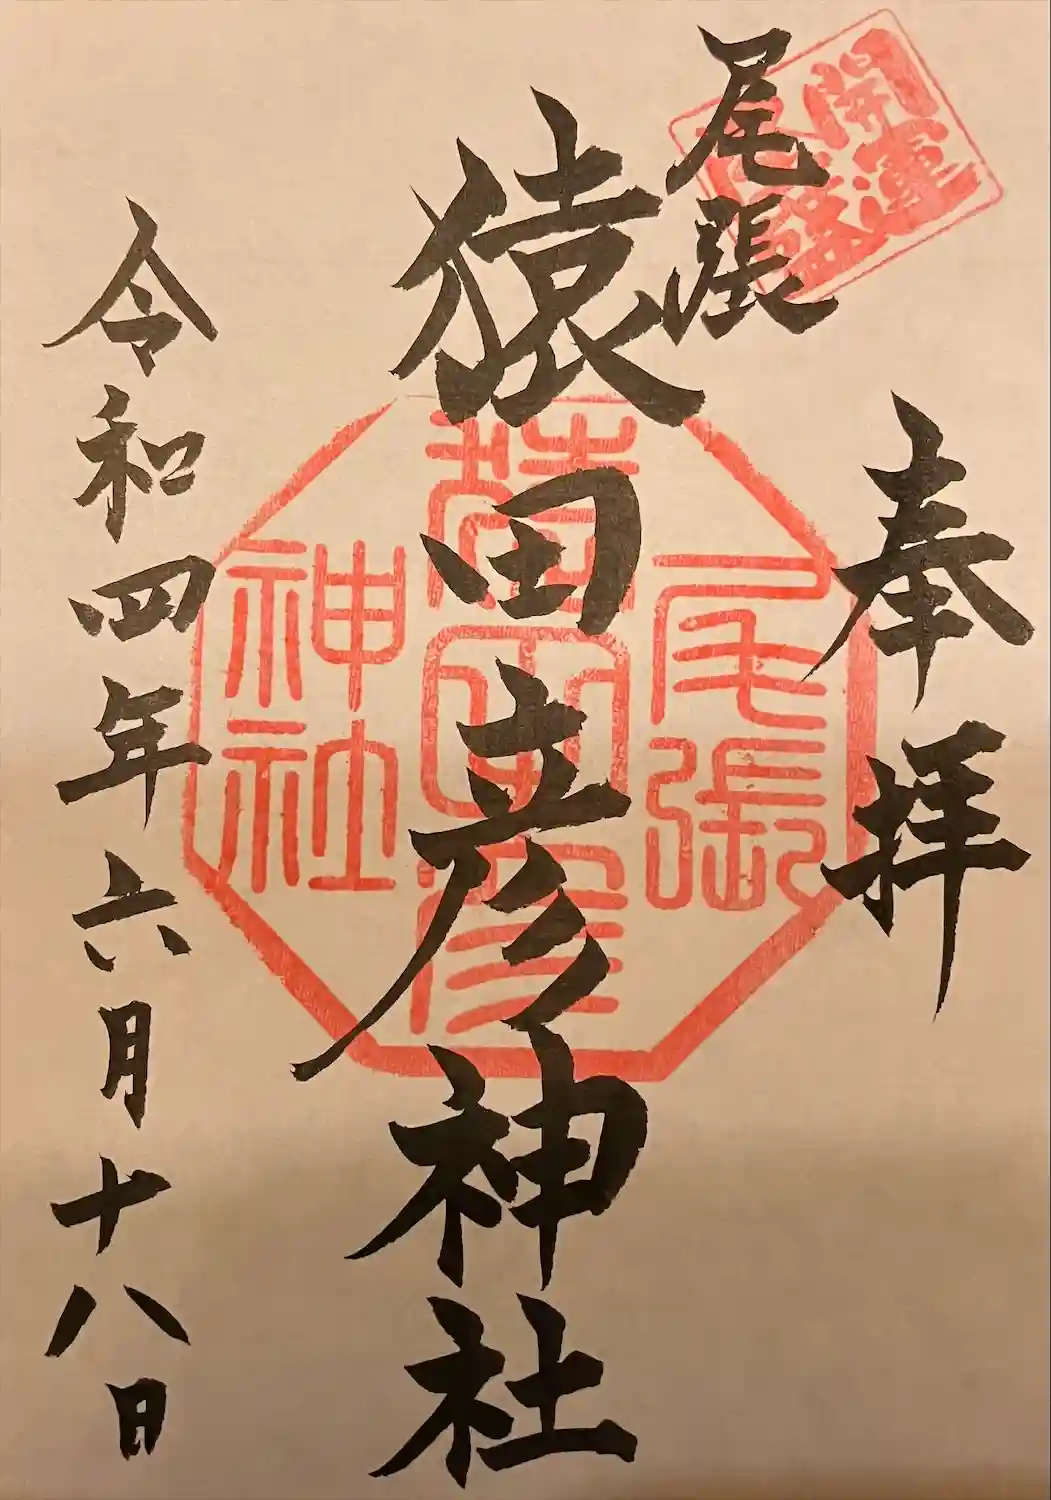 開運
尾張
奉拝
猿田彦神社
尾張
猿田彦
神社
令和四年六月十八日